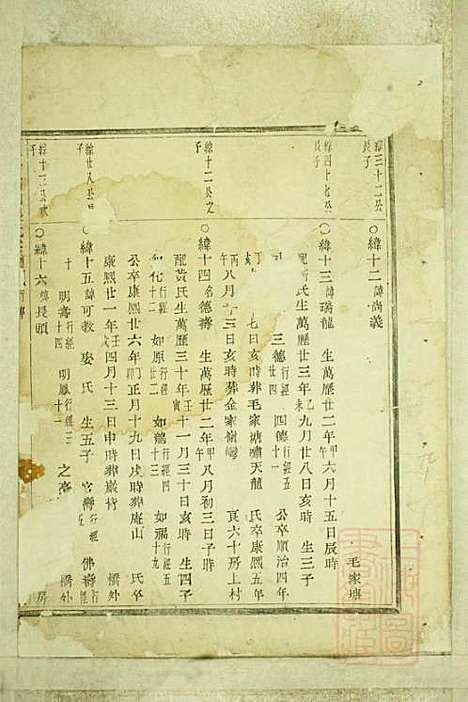 緯三十二公長子
○緯十二諱尚義
毛家塘
緯四十七公長子
○緯十三諱瑞龍 生萬歷廿二年甲午六月十五日辰時
配 氏生萬歷廿三年乙未九月廿八日亥時 生三子
三德行經廿四 四德十一 公卒順治四年
丁 七日亥時葬毛家塘嘯天龍 氏卒康熙五年
丙午八月十三日亥時葬金家嶺灣 亥六十房上村
緯十二公之子
○緯十四名德壽 生萬歷廿二年甲午八月初三日子時
配黃氏生萬歷三十年壬寅十一月三十日亥時 生四子
如化行經十二 如原行經廿二 如龍行經十三 如福行經四十九
公卒康熙六年 正月十九日戌時葬庵山 氏卒
康熙廿一年壬戌四月十三日申時葬嚴塔 橋外
緯廿八公 子
○緯十五諱可教 娶 氏 生五子 官壽行經 佛壽行經
十 明壽行經十四 明鳳行經三 之 橋外
緯十 公 子
○緯十六諱長頭
房